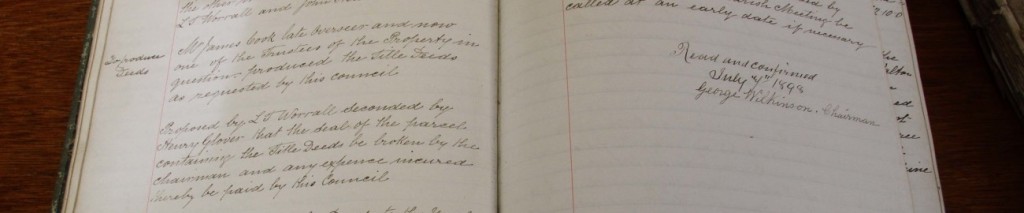 the other
L O Worrall and John
To produce
Deeds
Mr James Cook late overseer and now
one of the Trustees of the Property in
question produced the Title Deeds
as requested by this council
Proposed by L O Worrall seconded by
Henry Glover that the seal of the parcel
containing the Title Deeds be broken by the
chairman and any expence incured
thereby be paid by this Council
Parish Meeting be
called at an early date if necessary
Read and confirmed
July 4th 1898
George Wilkinson. Chairman